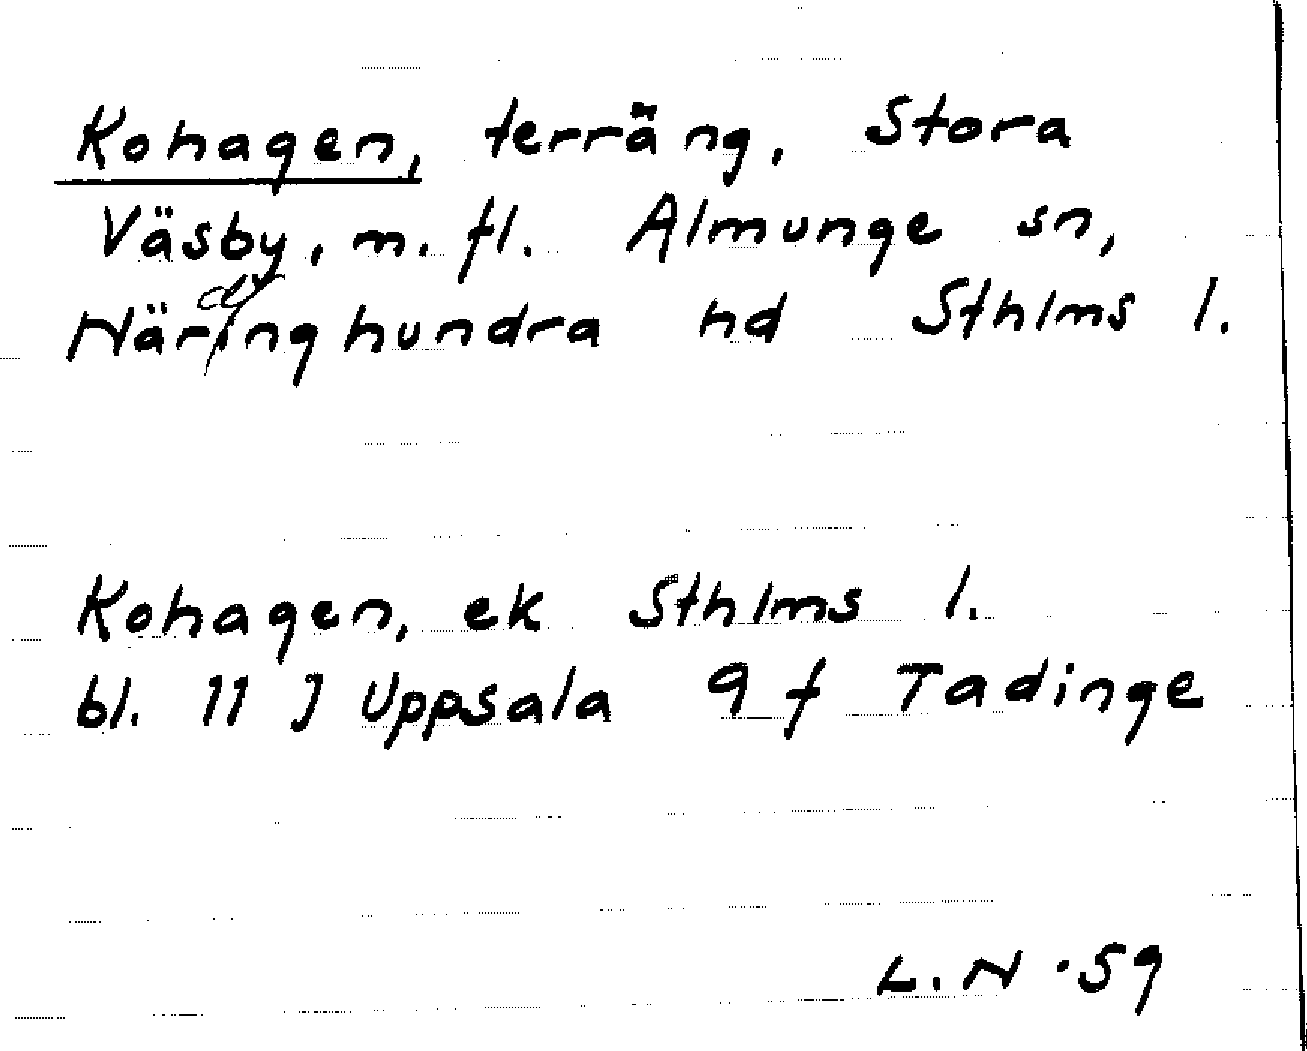 Kohagen, terräng, Stora
Väsby, m. fl. Almunge sn,
Närdinghundra hd Sthlms l.
Kohagen, ek Sthlms l.
bl. 11 J Uppsala 9 f Tadinge
L. N. 59